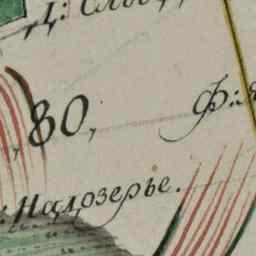 Д: Слоб
,80,
Ф:
Надозерье.